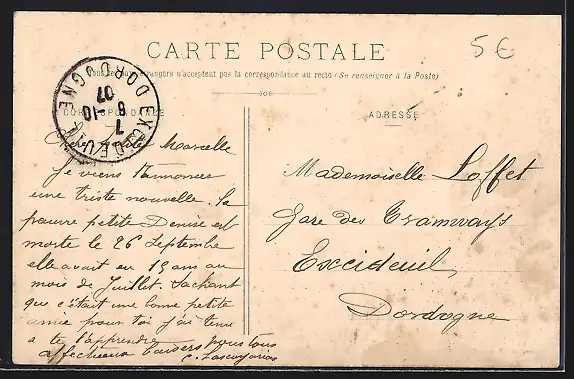 5€
CARTE POSTALE
Tous les pays étrangers n'acceptent pas la correspondance au recto (Se renseigner à la Poste)
CORRESPONDANCE
EXCIDEUIL
7
8-10
07
DORDOGNE
Marcelle
Je viens t'annoncer
une triste nouvelle. La
pauvre petite Denise est
morte le 26 Septembre
elle avait eu 15 ans au
mois de Juillet. Sachant
que c'était une bonne petite
amie pour toi j'ai tenu
a te l'apprendre
affectueux baisers pour tous
ADRESSE
Mademoiselle Loffet
Gare des Tramways
Excideuil,
Dordogne